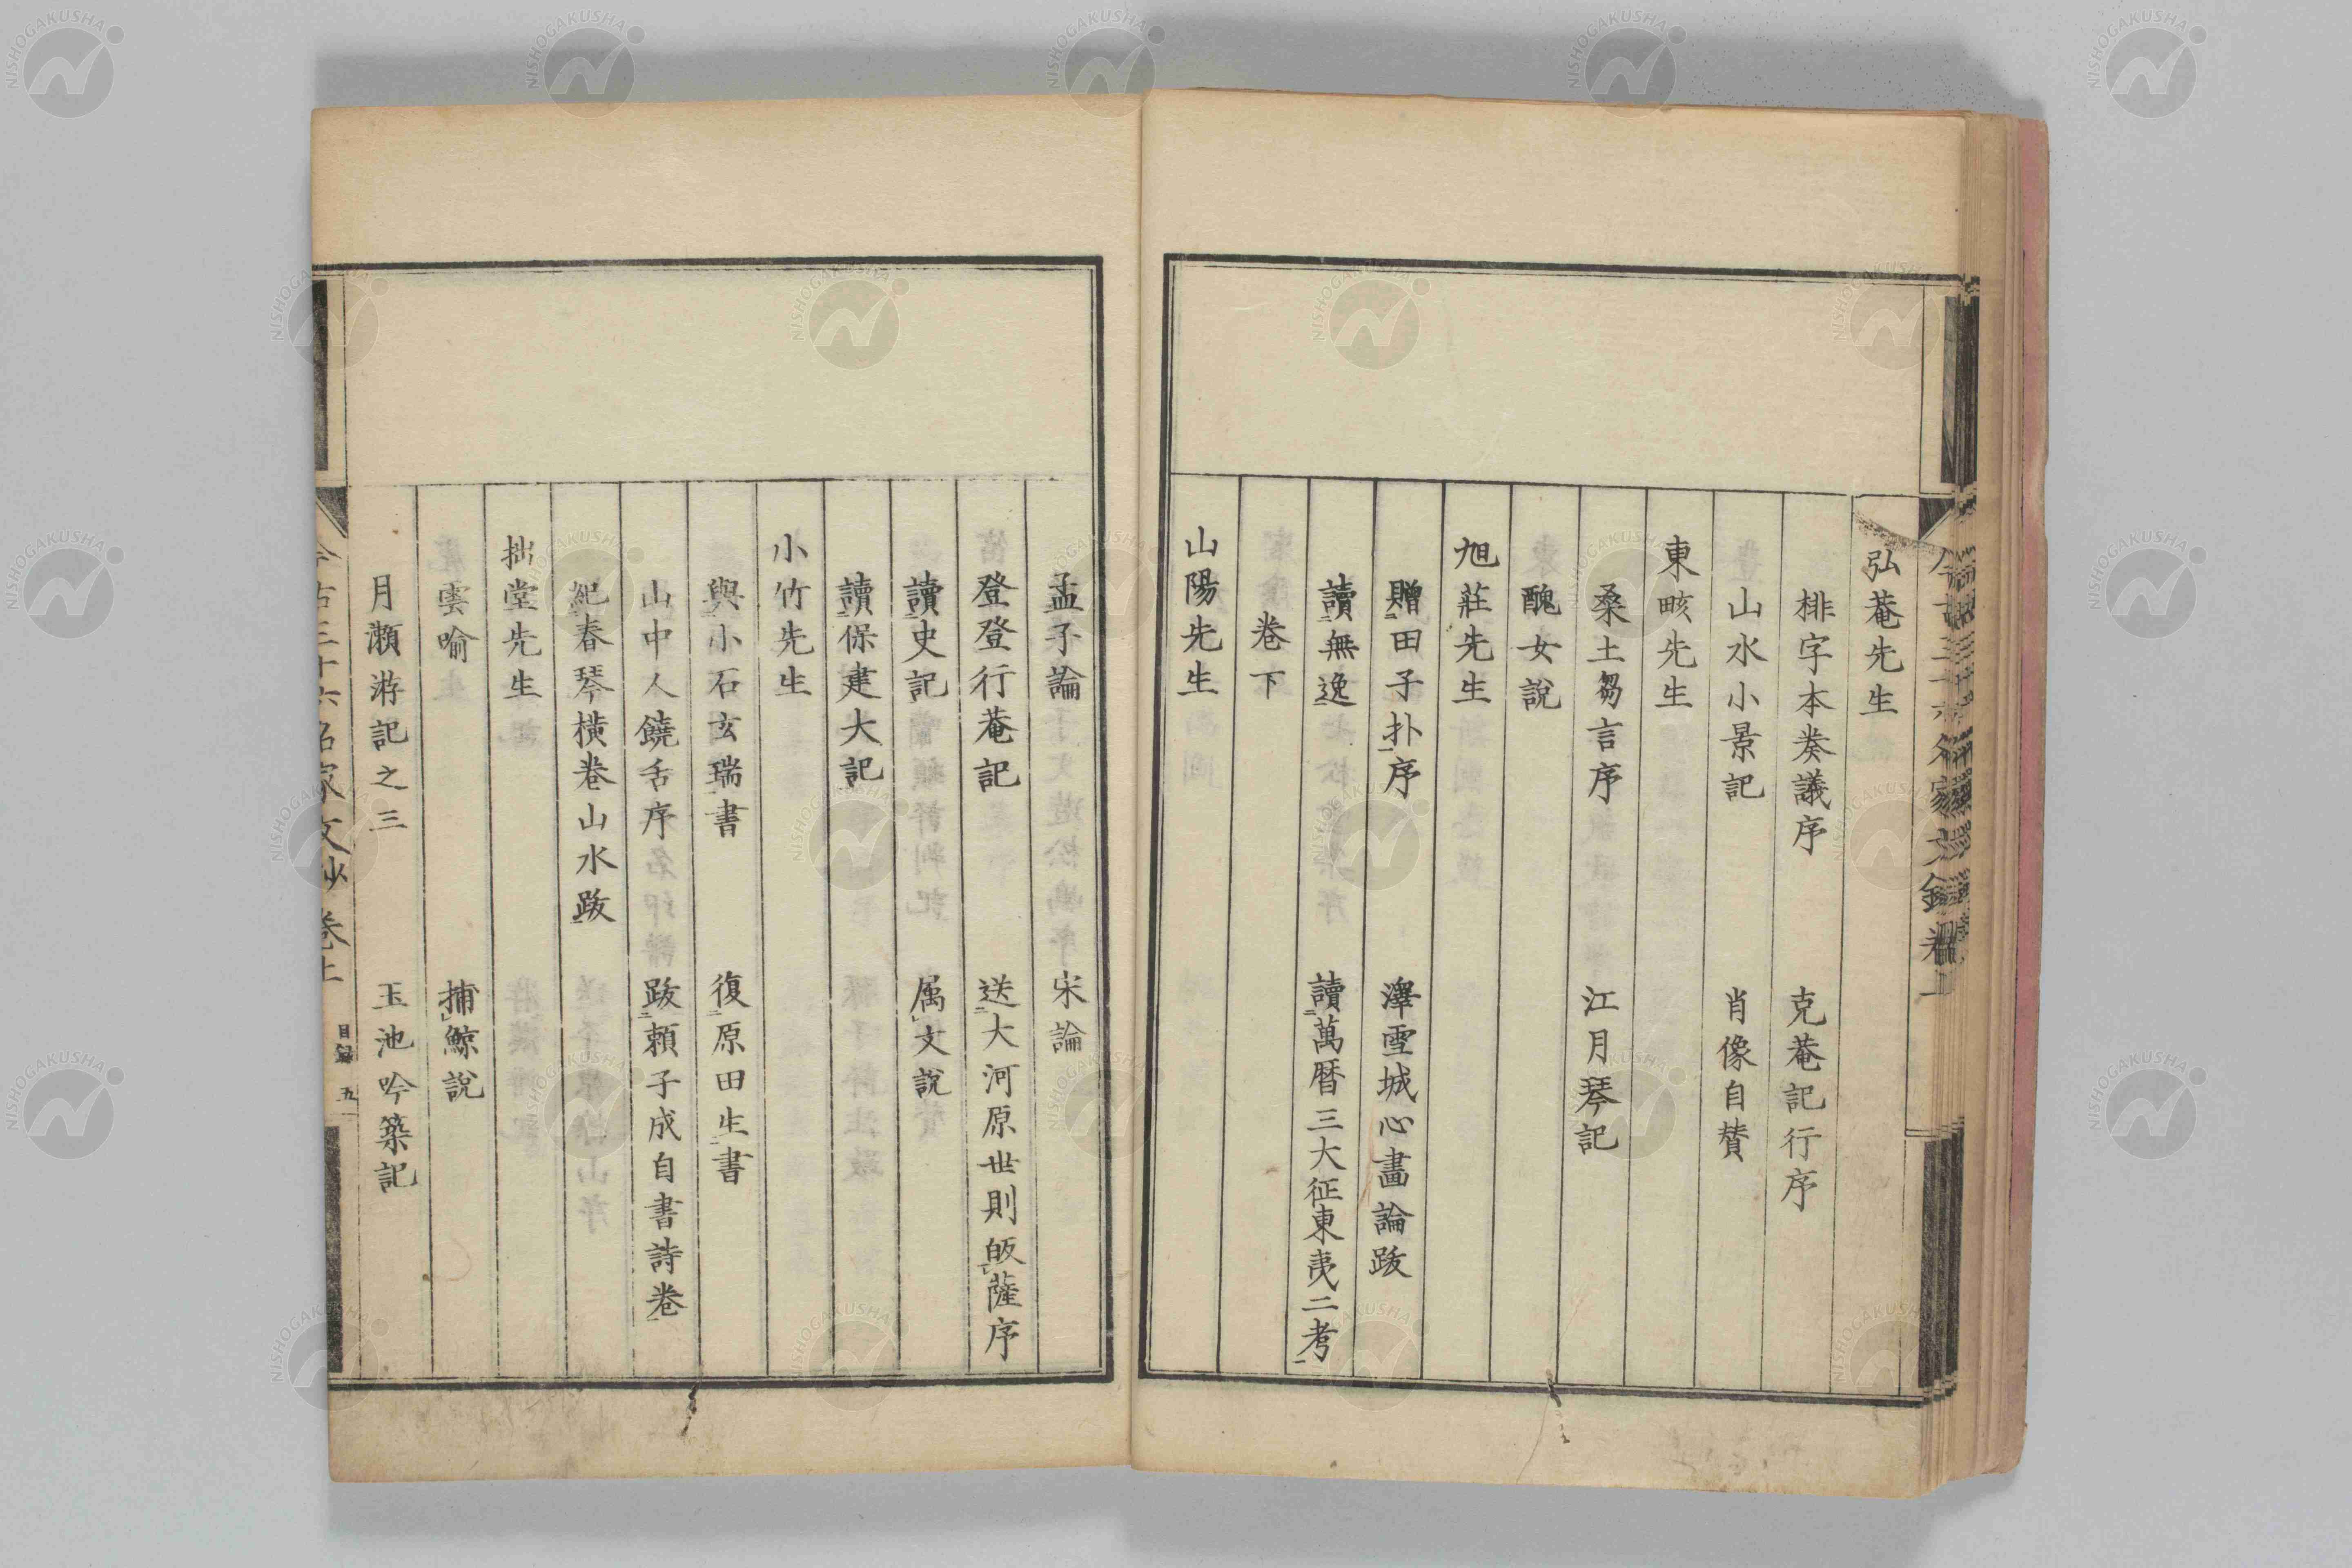 弘菴先生
排字本奏議序 克菴記行序
山水小景記 肖像自賛
東畡先生
桑土芻言序 江月琴記
醜女說
旭莊先生
贈田子扑序 澤雪城心畵論跋
讀無逸 讀萬曆三大征東夷二考
卷下
山陽先生
孟子論 宋論
登登行菴記 送大河原世則皈薩序
讀史記 属文說
讀保建大記
小竹先生
與小石玄瑞書 復原田生書
山中人饒舌序 跋賴子成自書詩卷
紀春琴橫卷山水跋
拙堂先生
雲喻 捕鯨說
月瀨游記之三 玉池吟築記
今古三十六名家文抄 卷上 目錄 五
NISHOGAKUSHA